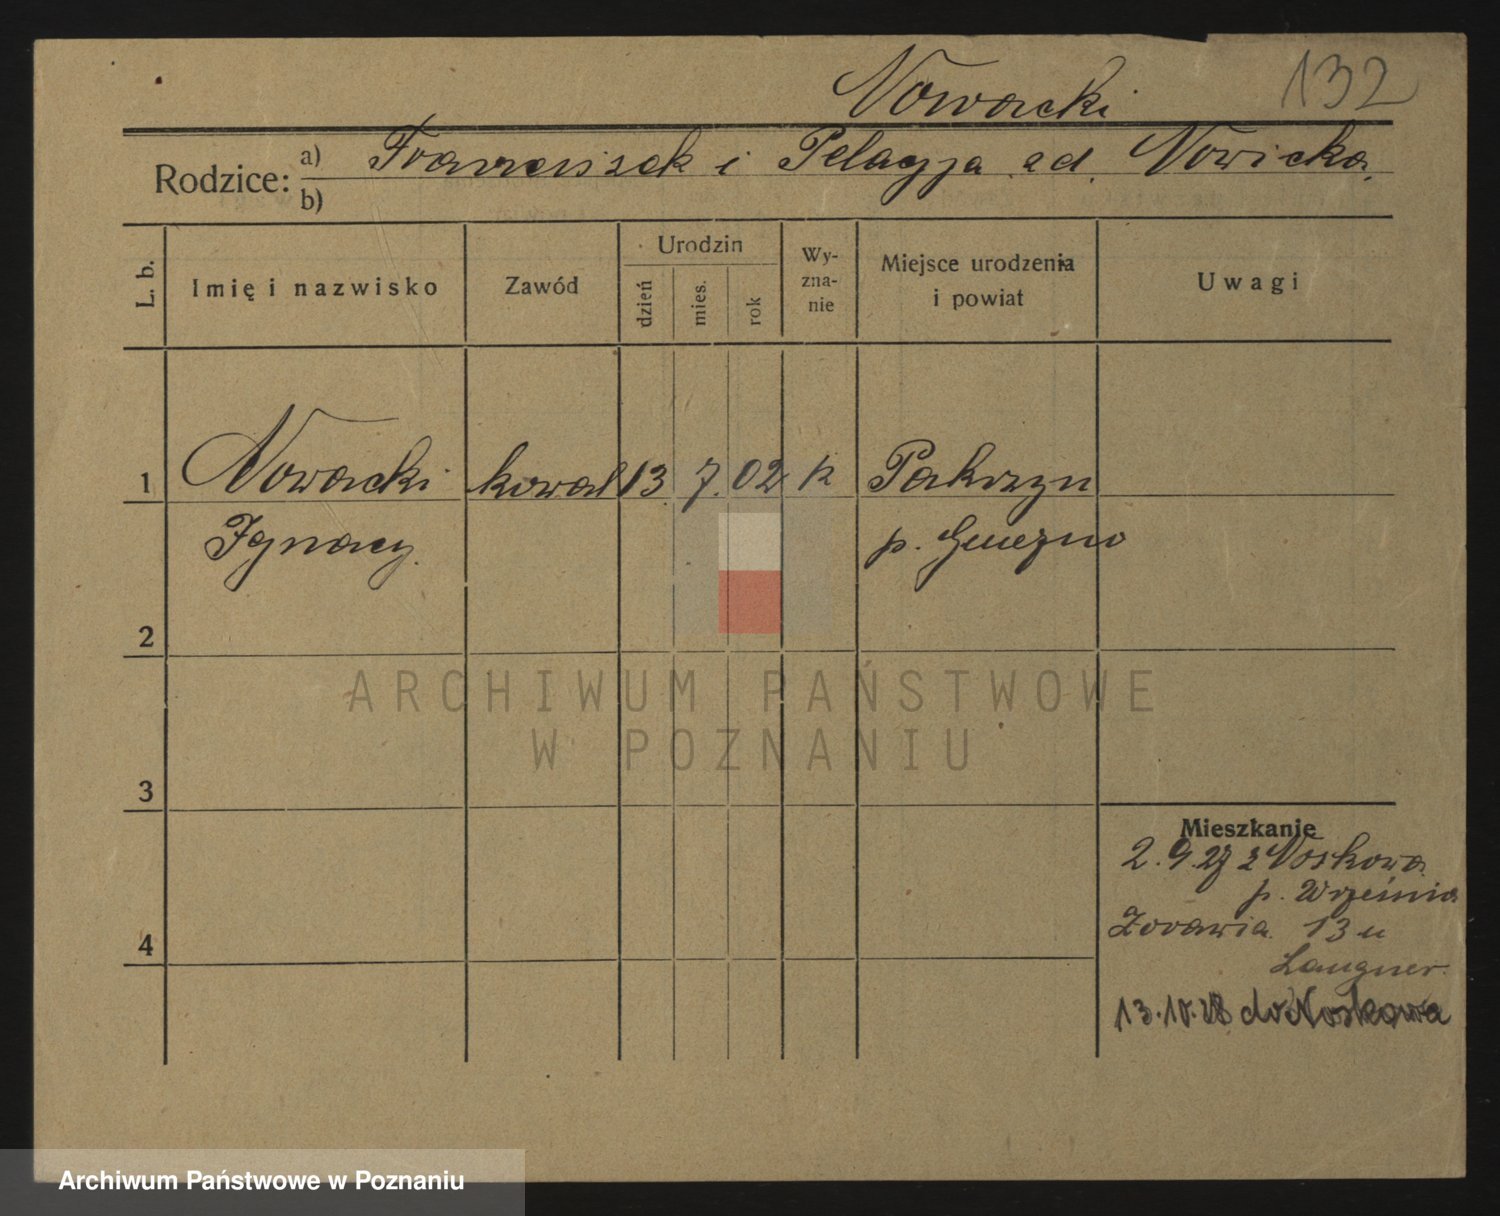 Nowacki 132
Rodzice: a) Franciszek i Pelagja zd. Nowicka
b)
L. b. Imię i nazwisko Zawód Urodzin dzień mies. rok Wy-zna-nie Miejsce urodzenia i powiat Uwagi
1 Nowacki kowal 13 7. 02 k Pakszyn
Ignacy. p. Gniezno
2
ARCHIWUM PAŃSTWOWE
W POZNANIU
3
Mieszkanie
2.9.27 z Noskowa
p. Września
4 Żórawia 13 u
Langner
13.10.28 do Noskowa
Archiwum Państwowe w Poznaniu